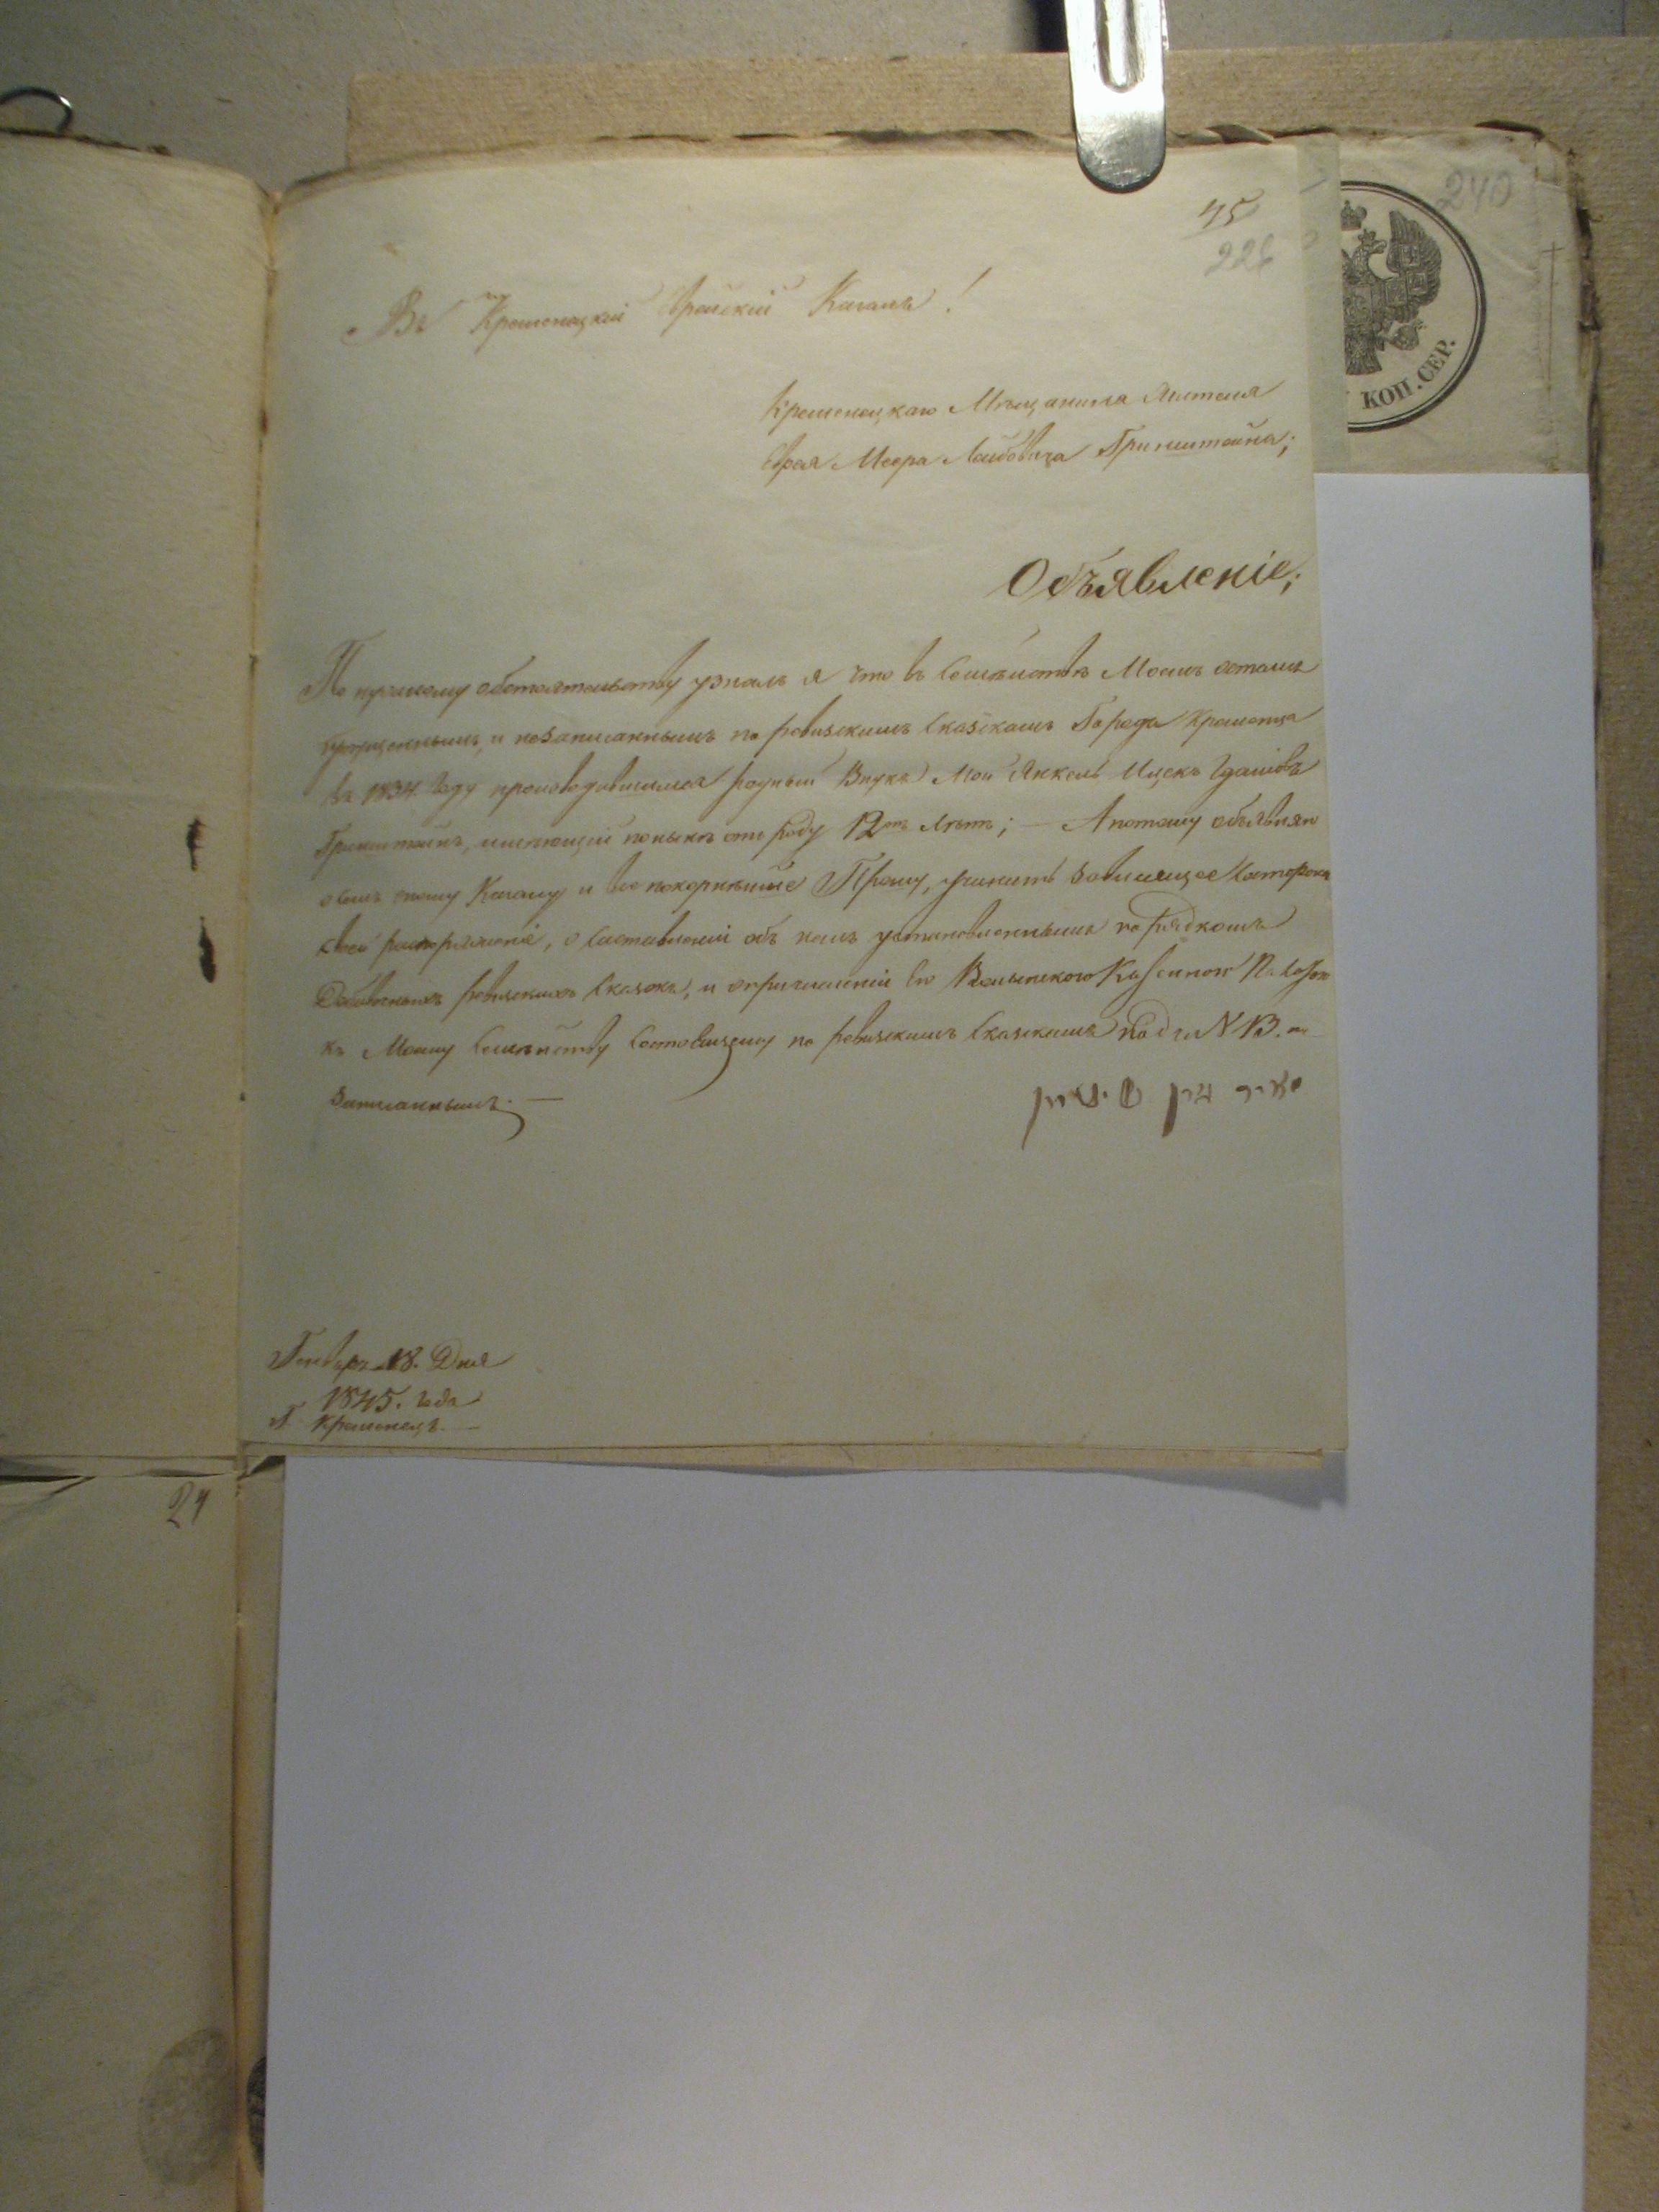 45
226
240
КОП. СЕР.
Въ Кременецкій Еврейскій Кагалъ!
Кременецкаго Мѣщанина Жителя
Еврея Меера Лейбовича Гринштейна;
Объявленіе;
По прошлому обстоятельству узналъ я что въ Семѣйствѣ Моемъ осталсь
пропущеннымъ и незаписаннымъ по ревизскимъ сказскамъ Города Кременца
въ 1834. Году производившимся родный Внукъ Мой Янкель Ицекъ
Гринштейнъ, имеющій понынѣ отъ роду 12ть лѣтъ; — А потому объявляю
о семъ оному Кагалу и всепокорнѣйше Прошу, учинить зависящее
свое распоряженіе, о составленіи объ немъ установленнымъ порядкомъ
Добавочныхъ ревизскихъ сказокъ, и о причисленіи Его Волынского Казенною Палатою
къ Моему Семѣйству Состоящему по ревизскимъ Сказскамъ подъ N
записаннымъ. —
מאיר גרין שטיין
Генваря 18. Дня
1845. года
Г. Кременецъ. —
24